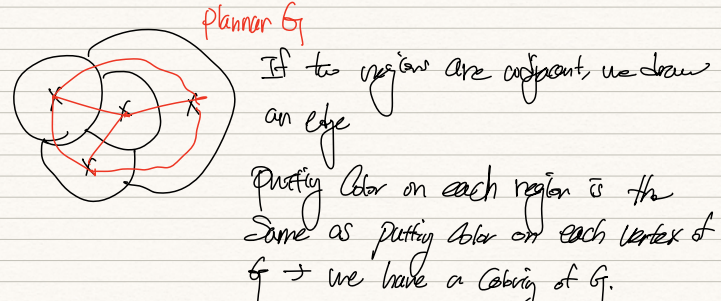 plannar G
If two regions are adjacent, we draw
an edge
Putting Color on each region is the
Same as putting Color on each vertex of
G → we have a Coloring of G.